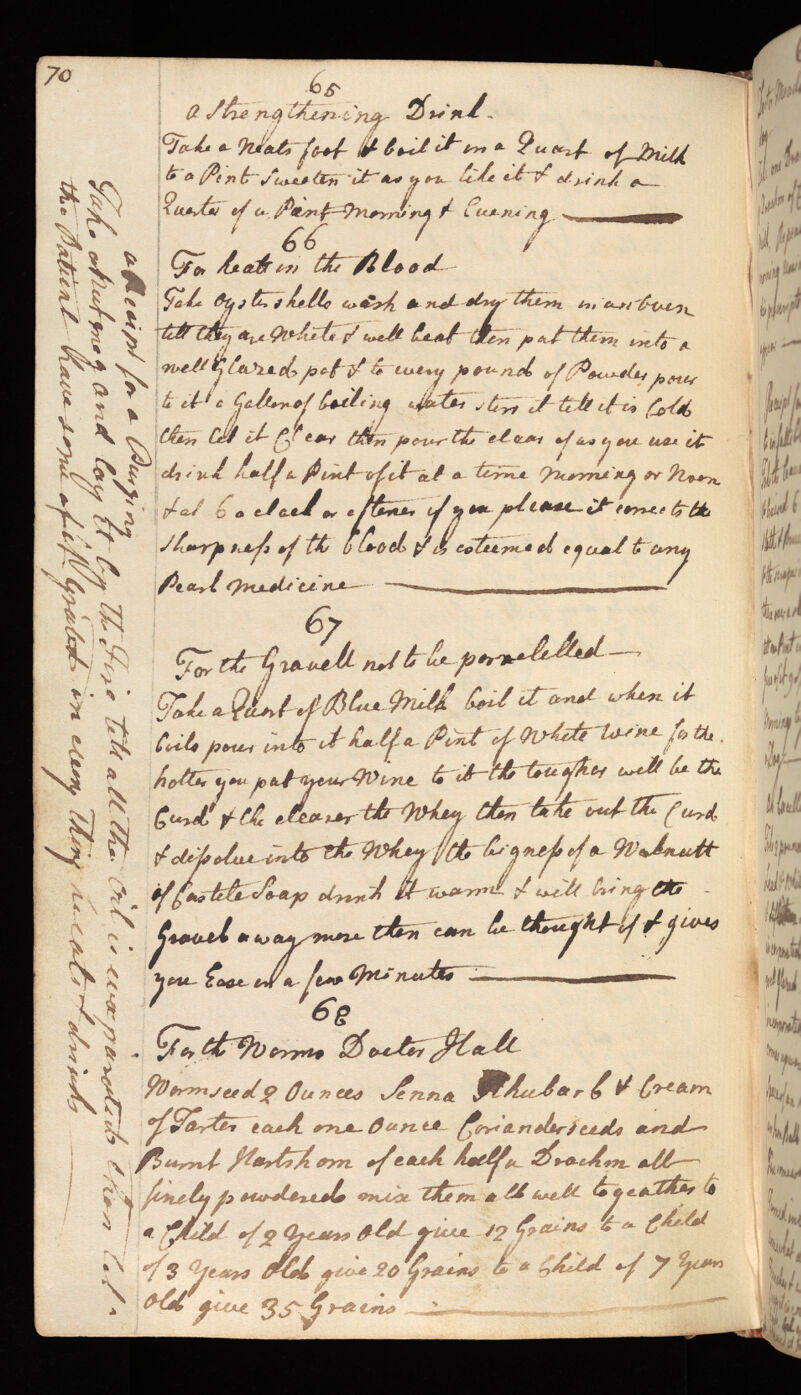 70
65
a Strengthening Drink -
Take a Neats foot & boil it in a Quart of Milk
to a Pint Sweeten it as you like it & drink a
Quarter of a Pint Morning & Evening
66
For heats in the Blood
Take Oystershells wash and dry them in an Oven
till they are White & well beat then put them into a
well Glazed pot & to every pound of Powder pour
to it a Gallon of boiling water stirr it till it is Cold
then let it Clear then pour the clear of as you use it
drink half a Pint of it at a time Morning or Noon
& at 6 a clock or oftener if you please it corrects the
sharpness of th blood & is esteemed equal to any
Pearl Medicine
67
For the Gravell not to be
Take a Quart of Blue Milk boil it and when it
boils pour into it half a Pint of White Wine for the
hotter you put your Wine to it the tougher will be the
Curd & the clearer the Whey then take out the Curd
& dissolve into the Whey the bigness of a Walnutt
of Castele Soap drink it warm & will bring the
Gravel away more then can be thought of & gives
you Ease in a few Minutes
68
For th Worms Docter Hall
Wormseed 2 Ounces Senna Rhubarb & Cream
of Tarter each one Ounce Corianderseeds and
Burnt Hartshorn of each half a Drachm all
finely powdered mix them all well togeather to
a Child of 2 Years Old give 12 Grains to a Child
of 3 Years Old give 20 Grains to a Child of 7 Years
Old give 35 Grains
a Receipt for a Purging
Take a Nutmeg and lay it by the Fire till all the Oil is evaporated then let
the Patient have some of it Grated in every thing he eats & drinks